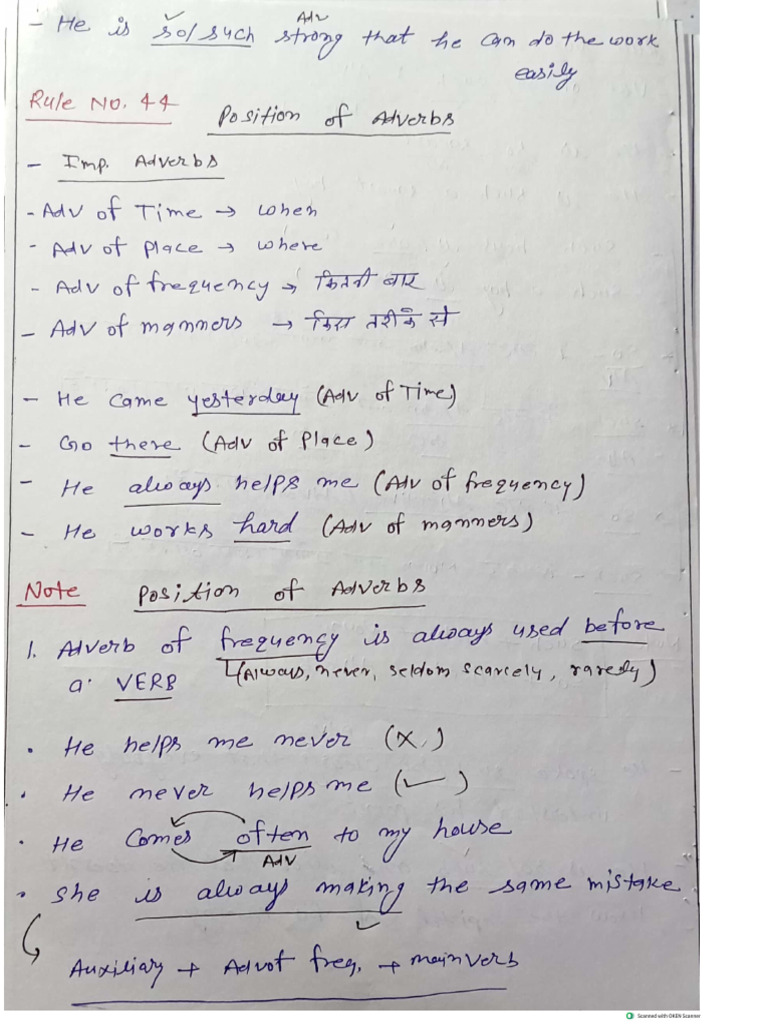 Adv
- He is so/such strong that he can do the work
easily
Rule No. 44
Position of Adverbs
- Imp. Adverbs
- Adv of Time → when
- Adv of Place → where
- Adv of frequency → कितनी बार
- Adv of manners → किस तरीके से
- He came yesterday (Adv of Time)
- Go there (Adv of Place)
- He always helps me (Adv of frequency)
- He works hard (Adv of manners)
Note Position of Adverbs
1. Adverb of frequency is always used before
a VERB (Always, never, seldom scarcely, rarely)
• He helps me never (×)
• He never helps me (✓)
• He comes often to my house
Adv
• She is always making the same mistake
Auxiliary + Adv of freq. + main verb
Scanned with OKEN Scanner